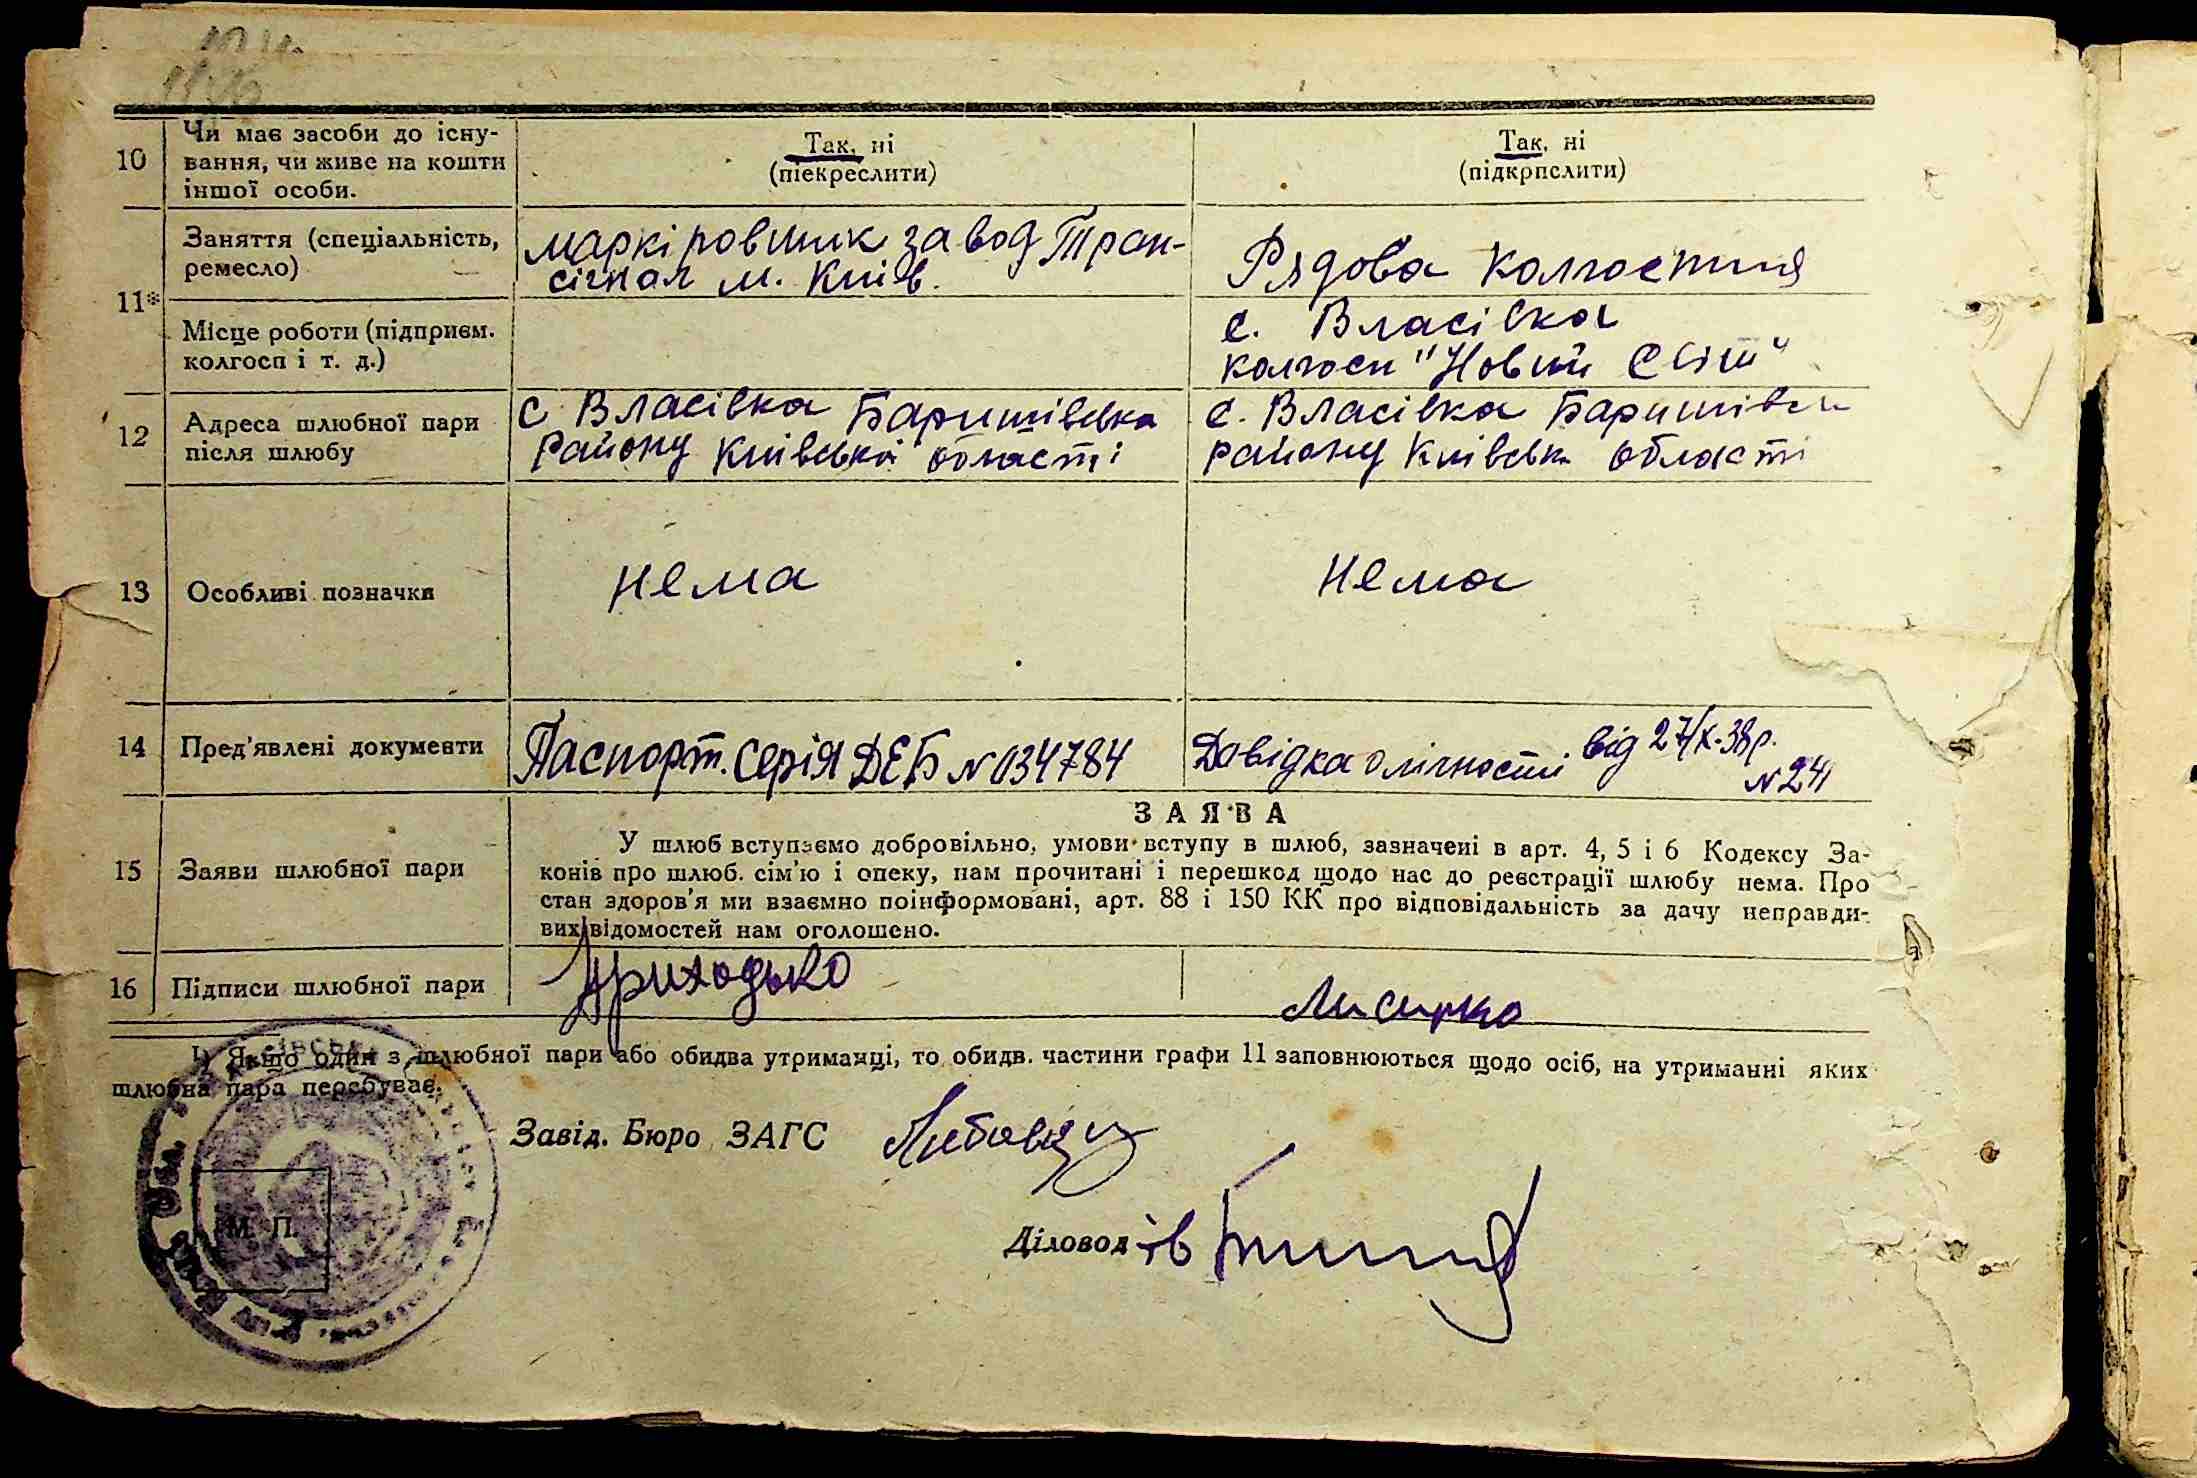 10
Чи має засоби до існу-
вання, чи живе на кошти
іншої особи.
Так, ні
(піекреслити)
Так, ні
(підкрпслити)
11*
Заняття (спеціальність,
ремесло)
маркіровшик завод Тран-
сігнал м. Київ.
Рядова колгоспниця
Місце роботи (підприєм.
колгосп і т. д.)
с. Власівка
колгосп "Новий Світ"
12
Адреса шлюбної пари
після шлюбу
с Власівка Баришівська
району Київська області
с. Власівка Баришівськ
району Київськ області
13
Особливі позначки
нема
нема
14
Пред'явлені документи
Паспорт. серія ДЕБ N 034784
Довідка о лічності від 27/X-38р.
N 24
15
Заяви шлюбної пари
ЗАЯВА
У шлюб вступаємо добровільно, умови вступу в шлюб, зазначені в арт. 4, 5 і 6 Кодексу За-
конів про шлюб. сім'ю і опеку, нам прочитані і перешкод щодо нас до реєстрації шлюбу нема. Про
стан здоров'я ми взаємно поінформовані, арт. 88 і 150 КК про відповідальність за дачу неправди-
вих відомостей нам оголошено.
16
Підписи шлюбної пари
Приходько
Якщо один з шлюбної пари або обидва утриманці, то обидв. частини графи 11 заповнюються щодо осіб, на утриманні яких
шлюбна пара перебуває.
Завід. Бюро ЗАГС
Діловод
М. П.